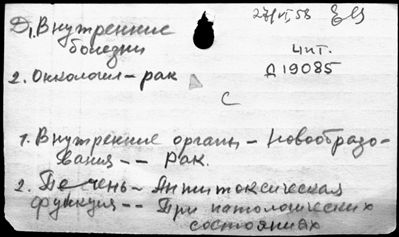 Д1. Внутренние
болезни
2. Онкология - рак
27/VI 58
чит.
Д 19085
С
1. Внутренние органы - Новообразо-
вания -- Рак.
2. Печень - Антитоксическая
функция -- При патологических
состояниях